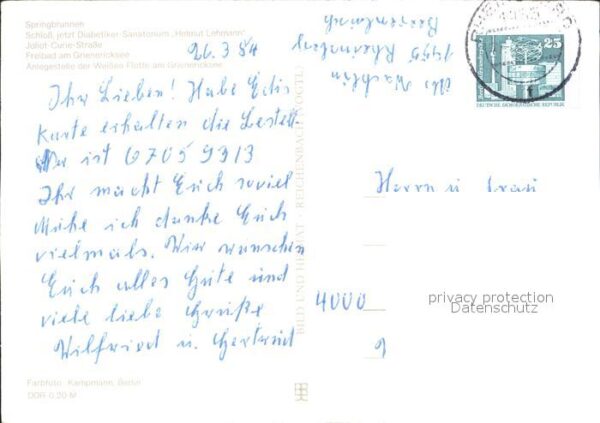 Springbrunnen
Schloß jetzt Diabetiker-Sanatorium „Helmut Lehmann“
Joliot-Curie-Straße
Freibad am Grienericksee
Anlegestelle der Weißen Flotte am Grienericksee
26.3 84
Ihr Lieben! Habe Edis
Karte erhalten die Bestell
Nr ist 6705 9313
Ihr macht Euch soviel
Mühe ich danke Euch
vielmals. Wir wünschen
Euch alles Gute und
viele liebe Grüße
Wilfried u. Gertrud
Farbfoto: Kampmann, Berlin
DDR 0,20 M
BILD UND HEIMAT · REICHENBACH (VOGTL)
1955 Rheinsberg
25
DEUTSCHE DEMOKRATISCHE REPUBLIK
Herrn u Frau
4000
privacy protection
Datenschutz
9